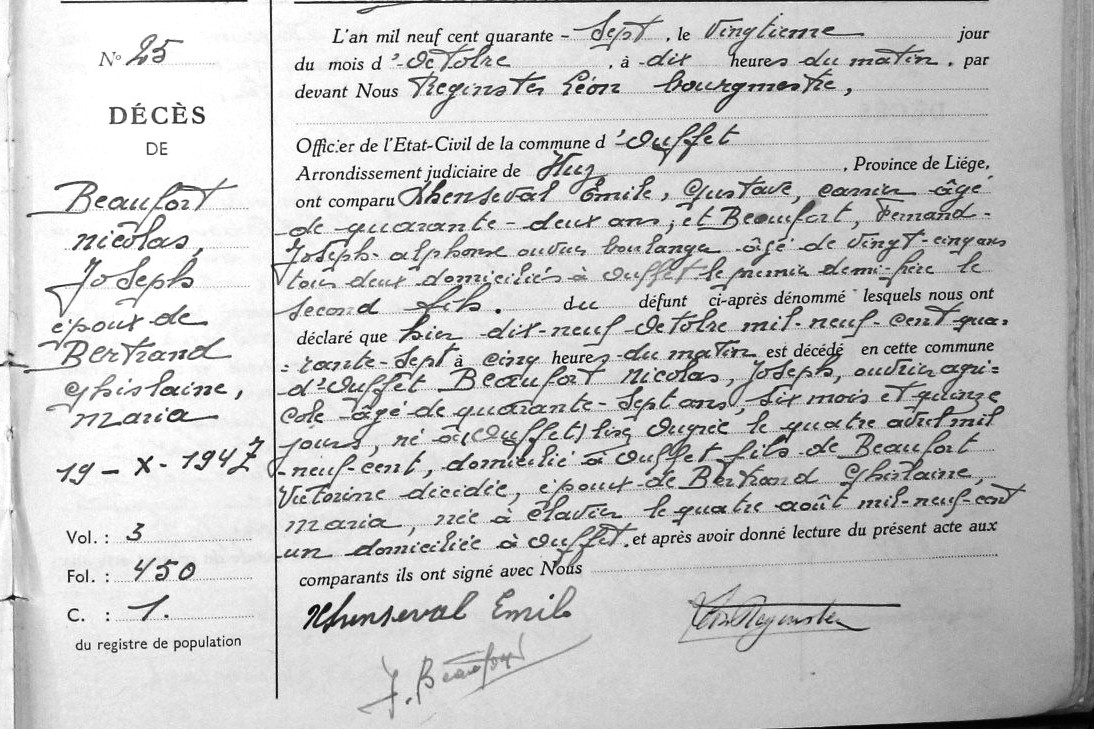 N° 25
DÉCÈS
DE
Beaufort
Nicolas,
Joseph
époux de
Bertrand
Ghislaine,
Maria
19 - X - 1947
Vol. : 3
Fol. : 450
C. : 1.
du registre de population
L'an mil neuf cent quarante - Sept, le Vingtième jour
du mois d'Octobre, à dix heures du matin, par
devant Nous Reginster Léon bourgmestre,
Officier de l'Etat-Civil de la commune d'Ouffet
Arrondissement judiciaire de Huy, Province de Liége,
ont comparu Thenseval Emile, Gustave, âgé
de quarante-deux ans, et Beaufort, Fernand-
Joseph-Alphonse ouvrier boulanger âgé de Vingt-cinq ans
tous deux domiciliés à Ouffet le premier demi-frère le
second fils. du défunt ci-après dénommé lesquels nous ont
déclaré que hier dix-neuf Octobre mil-neuf-cent-qua-
rante-Sept à cinq heures du matin est décédé en cette commune
d'Ouffet Beaufort Nicolas, Joseph, ouvrier agri-
cole âgé de quarante-Sept ans, six mois et quinze
jours, né à (Ouffet) lire Ougrée le quatre avril mil
neuf-cent, domicilié à Ouffet fils de Beaufort
Victorine décédée, époux de Bertrand Ghislaine,
Maria, née à Clavier le quatre août mil-neuf-cent
un domiciliée à Ouffet. et après avoir donné lecture du présent acte aux
comparants ils ont signé avec Nous
Thenseval Emile
Léon Reginster
F. Beaufort